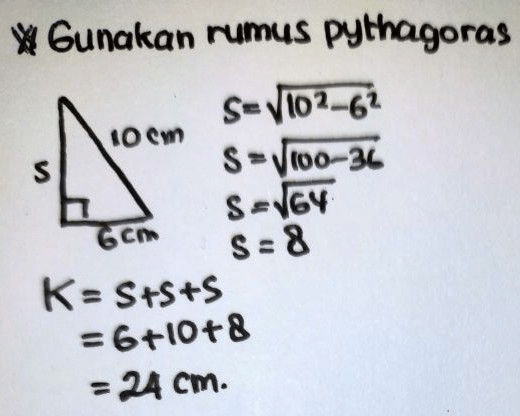 ※ Gunakan rumus pythagoras
10 cm
S
6 cm
S = √10² - 6²
S = √100 - 36
S = √64
S = 8
K = S + S + S
= 6 + 10 + 8
= 24 cm.